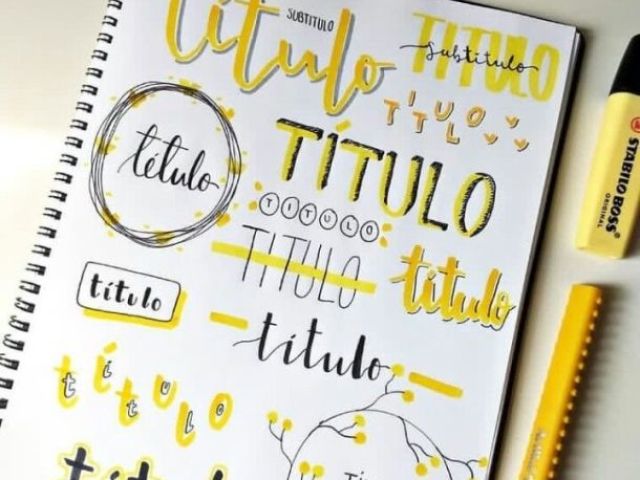 título
SUBTITULO
TÍTULO
subtitulo
TÍTULO
título
TÍTULO
TITULO
TITULO
título
título
título
título
título
TÍ
STABILO BOSS
ORIGINAL